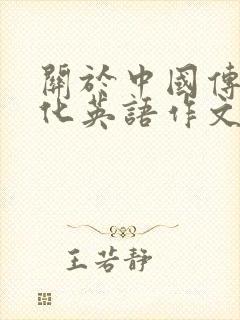 關於中國傳
化英語作文
王若靜